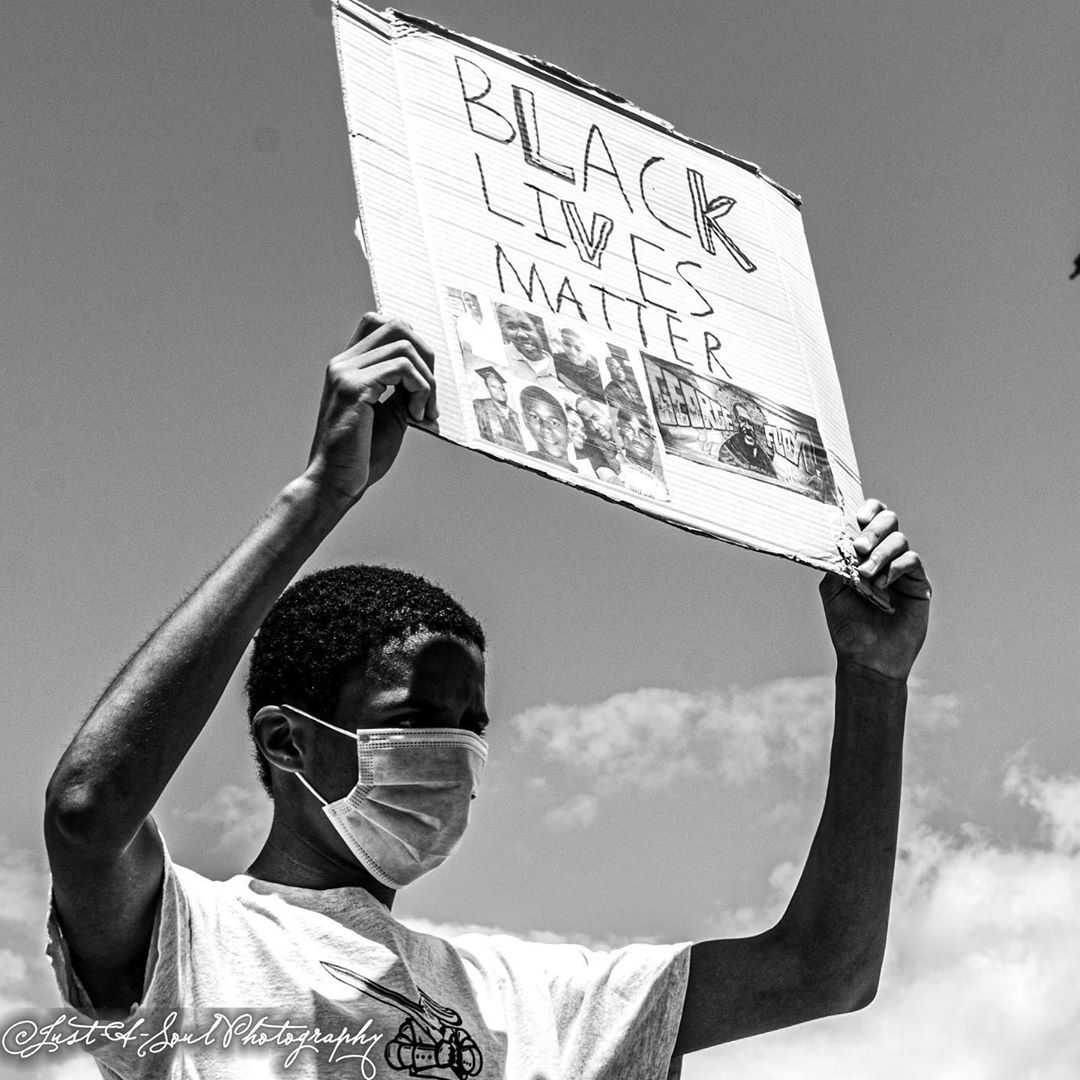 BLACK
LIVES
MATTER
GEORGE FLOYD
©Just-A-Soul Photography